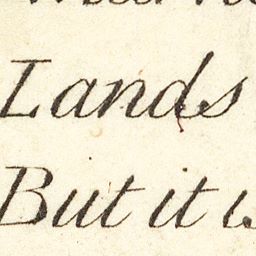 Lands
But it is